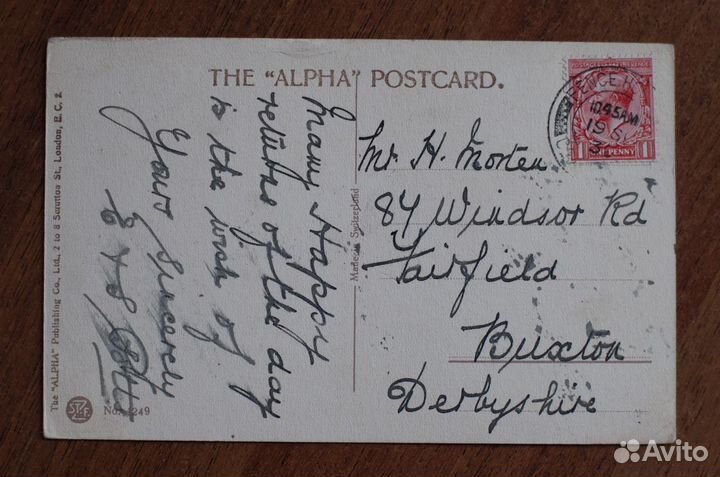 THE "ALPHA" POSTCARD.
Many Happy
returns of the day
is the wish of
Yours Sincerely
E & S
Mr. H. Morten
84 Windsor Rd
Fairfield
Buxton
Derbyshire
10.45 AM
19 S
POSTAGE REVENUE
1 PENNY 1
Made in Switzerland
The "ALPHA" Publishing Co., Ltd., 2 to 8 Scrutton St., London, E.C. 2.
No. 249
Avito